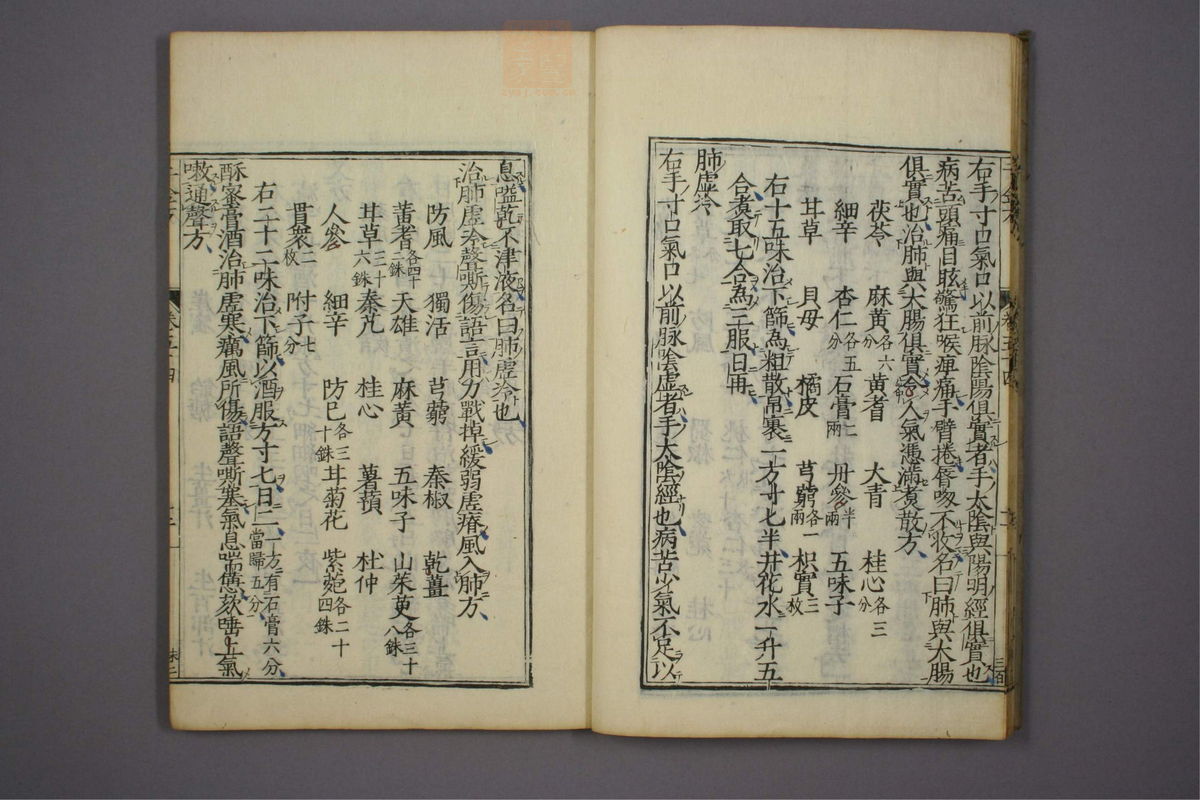 右手寸口氣口以前脉陰陽俱實者手太陰與陽明經俱實也
病苦頭痛目眩驚狂喉痺痛手臂捲脣吻不收名曰肺與大腸
俱實也治肺與大腸俱實令人氣憑滿煑散方
茯苓 麻黃各六分 黃耆 大青 桂心各三分
細辛 杏仁各五分 石膏二兩 丹參半兩 五味子
甘草 貝母 橘皮 芎藭各一兩 枳實三枚
右十五味治下篩為粗散帛裹一方寸七半井花水一升五
合煑取七合為三服日再
肺虛冷
右手寸口氣口以前脉陰虛者手太陰經也病苦少氣不足以
息嗌乾不津液名曰肺虛冷也
治肺虛冷聲嘶傷語言用力戰掉緩弱虛瘠風入肺方
防風 獨活 芎藭 秦椒 乾薑
黃耆各四十二銖 天雄 麻黃 五味子 山茱萸各三十八銖
甘草三十六銖 秦艽 桂心 薯蕷 杜仲
人參 細辛 防巳各三十銖 甘菊花 紫菀各二十四銖
貫衆二枚 附子七分
右二十二味治下篩以酒服方寸七日二一方有石膏六分當歸五分
酥蜜膏酒治肺虛寒癘風所傷語聲嘶塞氣息喘憊欬唾上氣
嗽通聲方